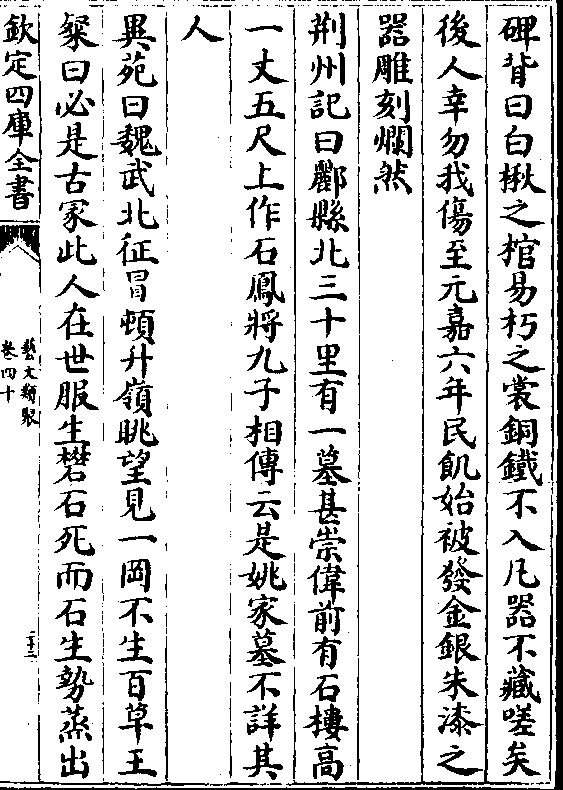 碑背曰白楸之棺易朽之裳銅鐵不入凡器不藏嗟矣
後人幸勿我傷至元嘉六年民飢始被發金銀朱漆之
器雕刻爛然
荆州記曰酈縣北三十里有一墓甚崇偉前有石樓高
一丈五尺上作石鳳將九子相傳云是姚家墓不詳其
人
異苑曰魏武北征冒頓升嶺眺望見一岡不生百草王
粲曰必是古冢此人在世服生礬石死而石生勢蒸出
欽定四庫全書
藝文類聚
卷四十
二十三